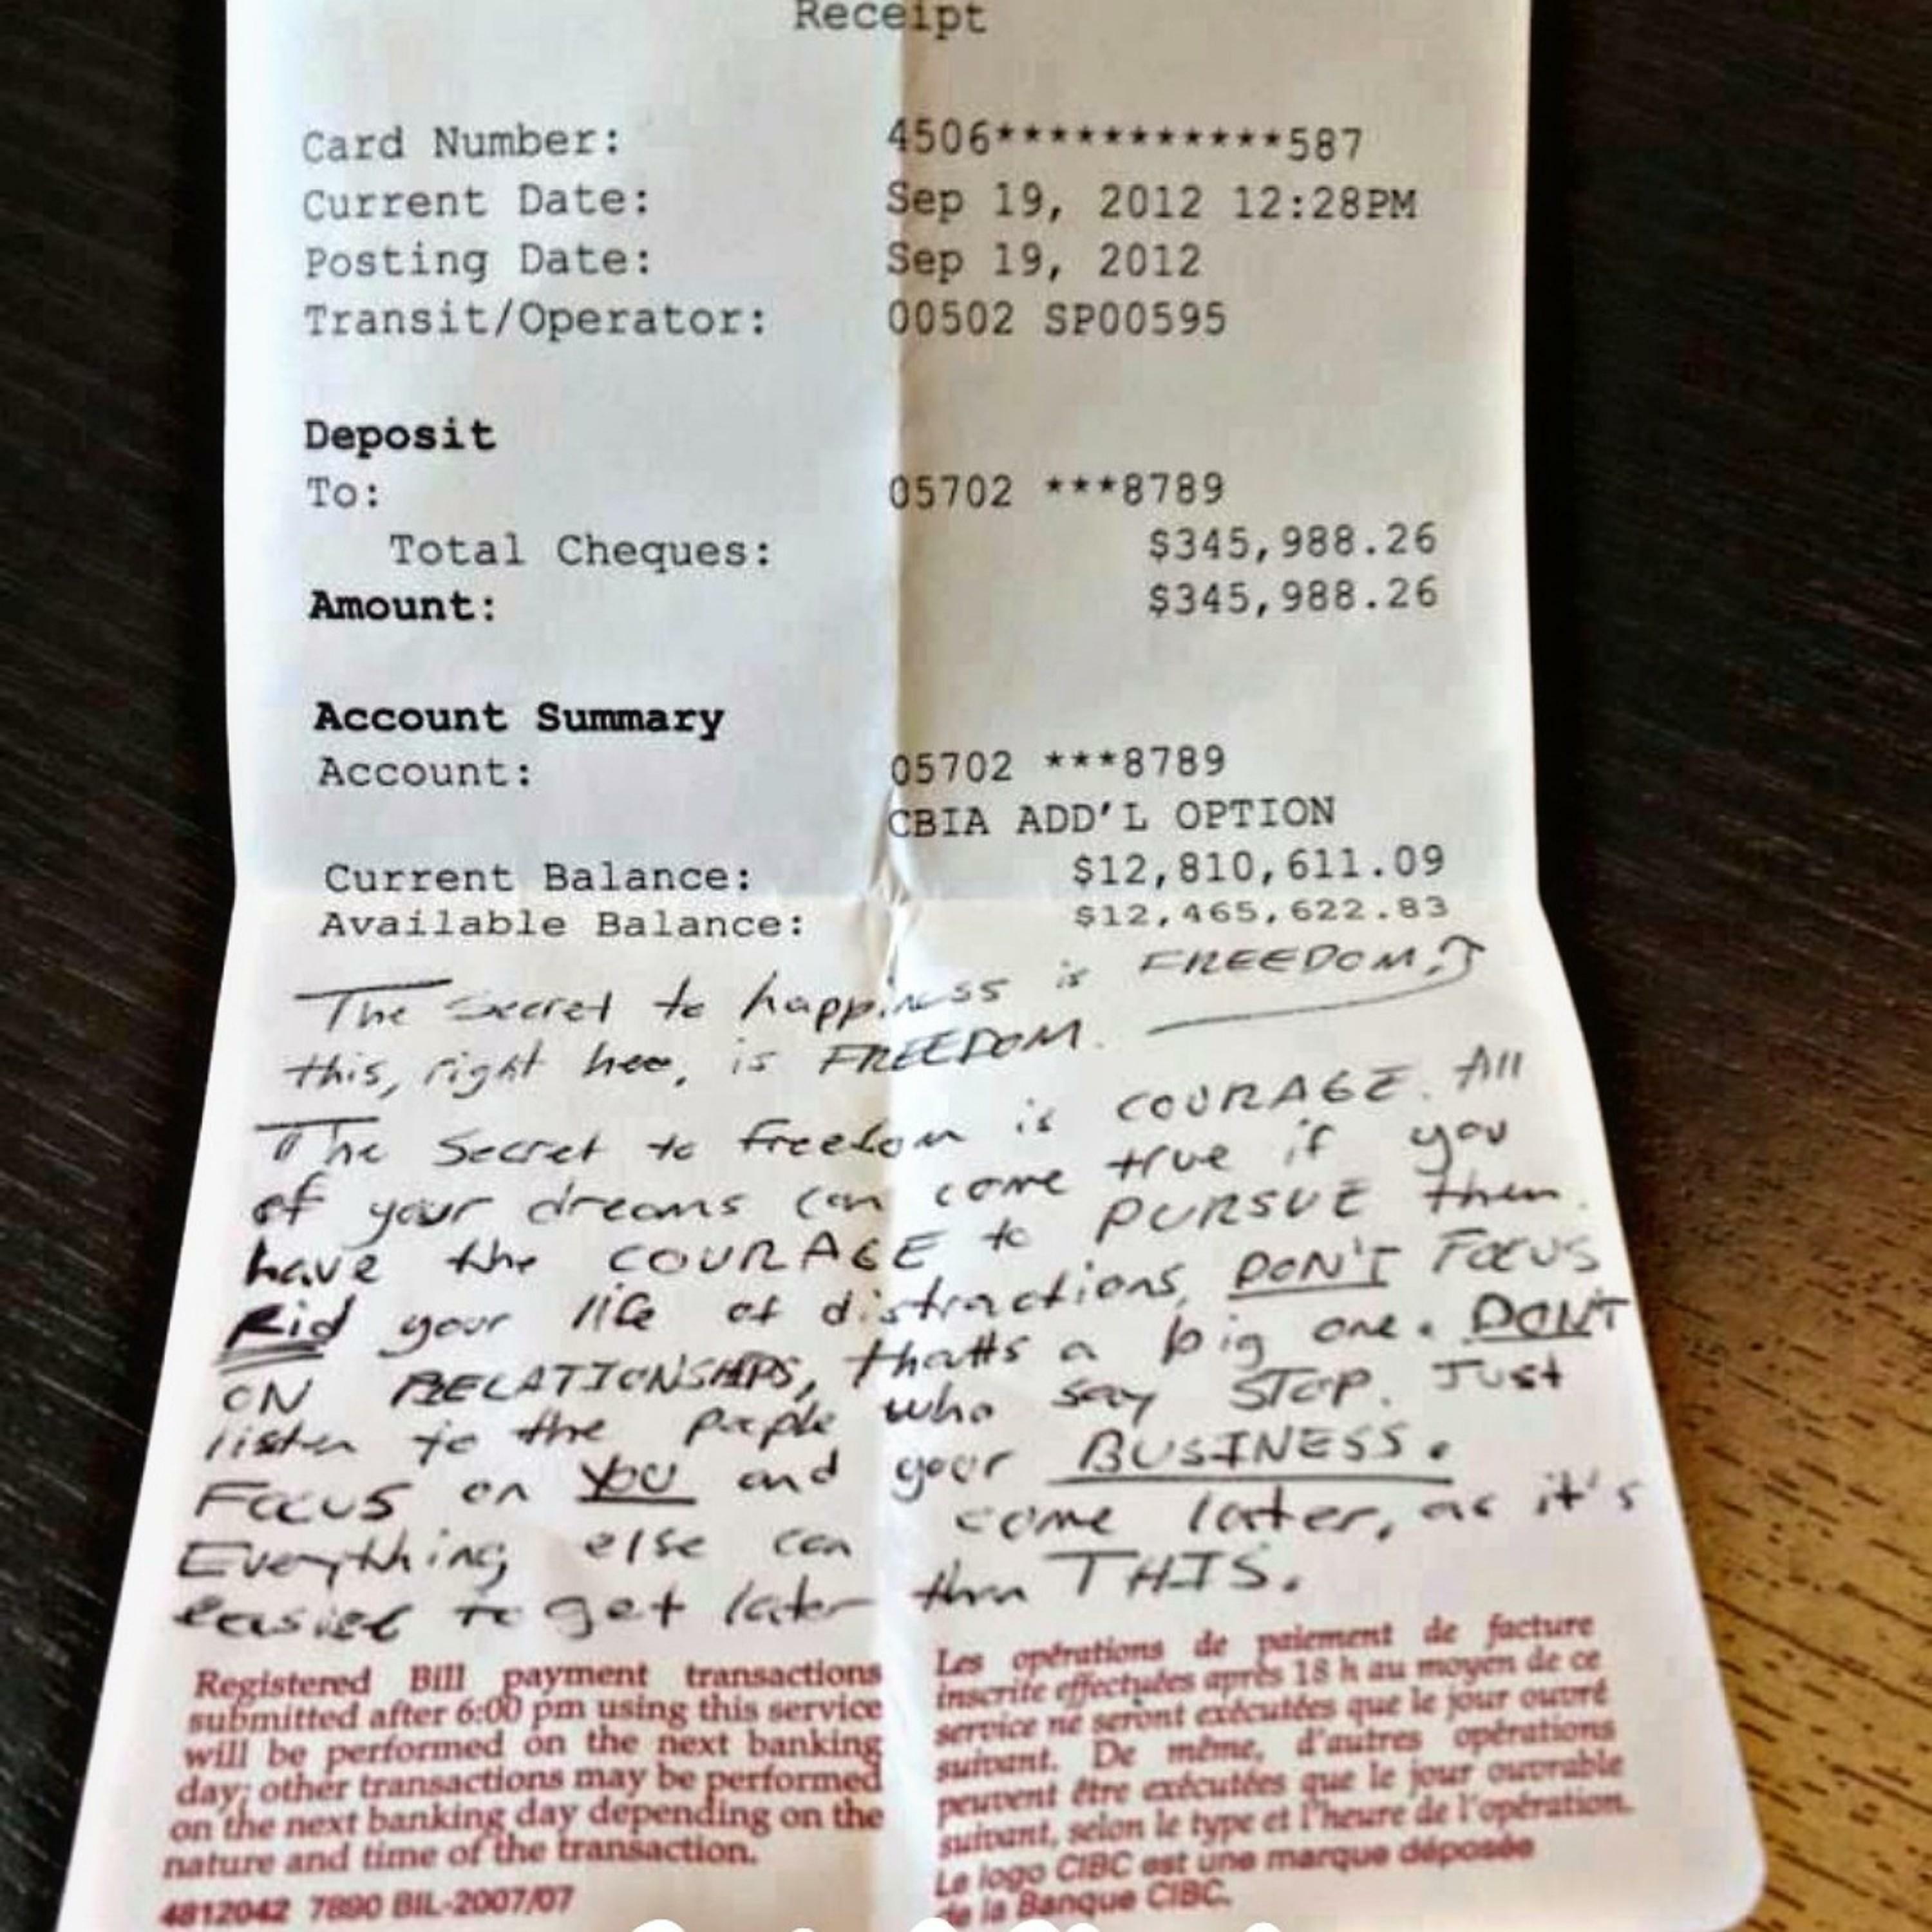 Receipt
Card Number: 4506***********587
Current Date: Sep 19, 2012 12:28PM
Posting Date: Sep 19, 2012
Transit/Operator: 00502 SP00595
Deposit
To: 05702 ***8789
Total Cheques: $345,988.26
Amount: $345,988.26
Account Summary
Account: 05702 ***8789
CBIA ADD'L OPTION
Current Balance: $12,810,611.09
Available Balance: $12,465,622.83
The Secret to happiness is FREEDOM,
this, right here, is FREEDOM.
The Secret to freedom is COURAGE. All
of your dreams can come true if you
have the COURAGE to PURSUE them.
Rid your life of distractions, DON'T FOCUS
ON RELATIONSHIPS, thatts a big one. DON'T
listen to the people who say STOP. Just
FOCUS on YOU and your BUSINESS.
Everything else can come later, as it's
easier to get later than THIS.
Registered Bill payment transactions
submitted after 6:00 pm using this service
will be performed on the next banking
day; other transactions may be performed
on the next banking day depending on the
nature and time of the transaction.
4812042 7890 BIL-2007/07
Les opérations de paiement de facture
inscrite effectuées après 18 h au moyen de ce
service ne seront exécutées que le jour ouvré
suivant. De même, d'autres opérations
peuvent être exécutées que le jour ouvrable
suivant, selon le type et l'heure de l'opération.
Le logo CIBC est une marque déposée
de la Banque CIBC.